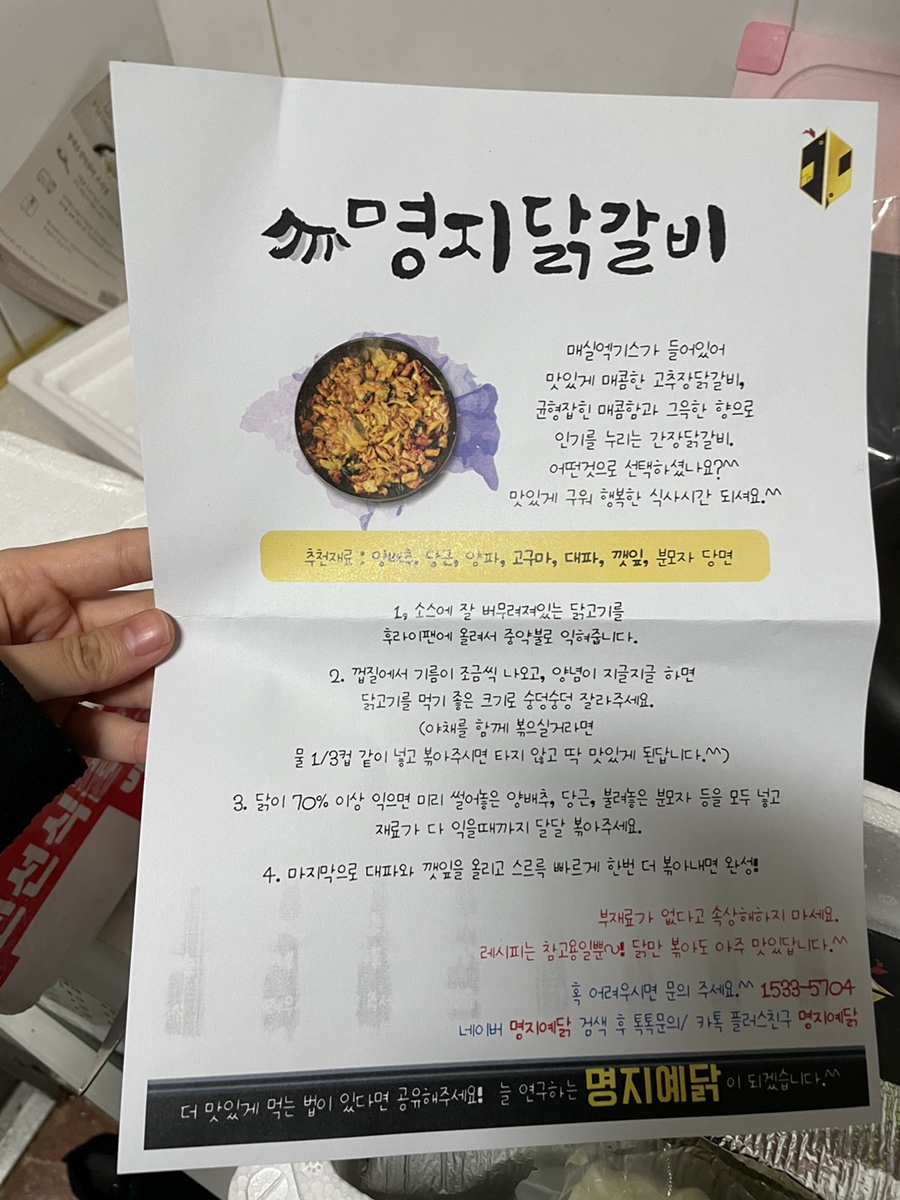 명지닭갈비
매실엑기스가 들어있어
맛있게 매콤한 고추장닭갈비,
균형잡힌 매콤함과 그윽한 향으로
인기를 누리는 간장닭갈비.
어떤것으로 선택하셨나요?^^
맛있게 구워 행복한 식사시간 되셔요.^^
추천재료 : 양배추, 당근, 양파, 고구마, 대파, 깻잎, 분모자 당면
1, 소스에 잘 버무려져있는 닭고기를
후라이팬에 올려서 중약불로 익혀줍니다.
2. 껍질에서 기름이 조금씩 나오고, 양념이 지글지글 하면
닭고기를 먹기 좋은 크기로 숭덩숭덩 잘라주세요.
(야채를 함께 볶으실거라면
물 1/3컵 같이 넣고 볶아주시면 타지 않고 딱 맛있게 된답니다.^^)
3. 닭이 70% 이상 익으면 미리 썰어놓은 양배추, 당근, 불려놓은 분모자 등을 모두 넣고
재료가 다 익을때까지 달달 볶아주세요.
4. 마지막으로 대파와 깻잎을 올리고 스르륵 빠르게 한번 더 볶아내면 완성!
부재료가 없다고 속상해하지 마세요.
레시피는 참고용일뿐~! 닭만 볶아도 아주 맛있답니다.^^
혹 어려우시면 문의 주세요.^^ 1533-5704
네이버 명지예닭 검색 후 톡톡문의/ 카톡 플러스친구 명지예닭
더 맛있게 먹는 법이 있다면 공유해주세요! 늘 연구하는 명지예닭이 되겠습니다.^^